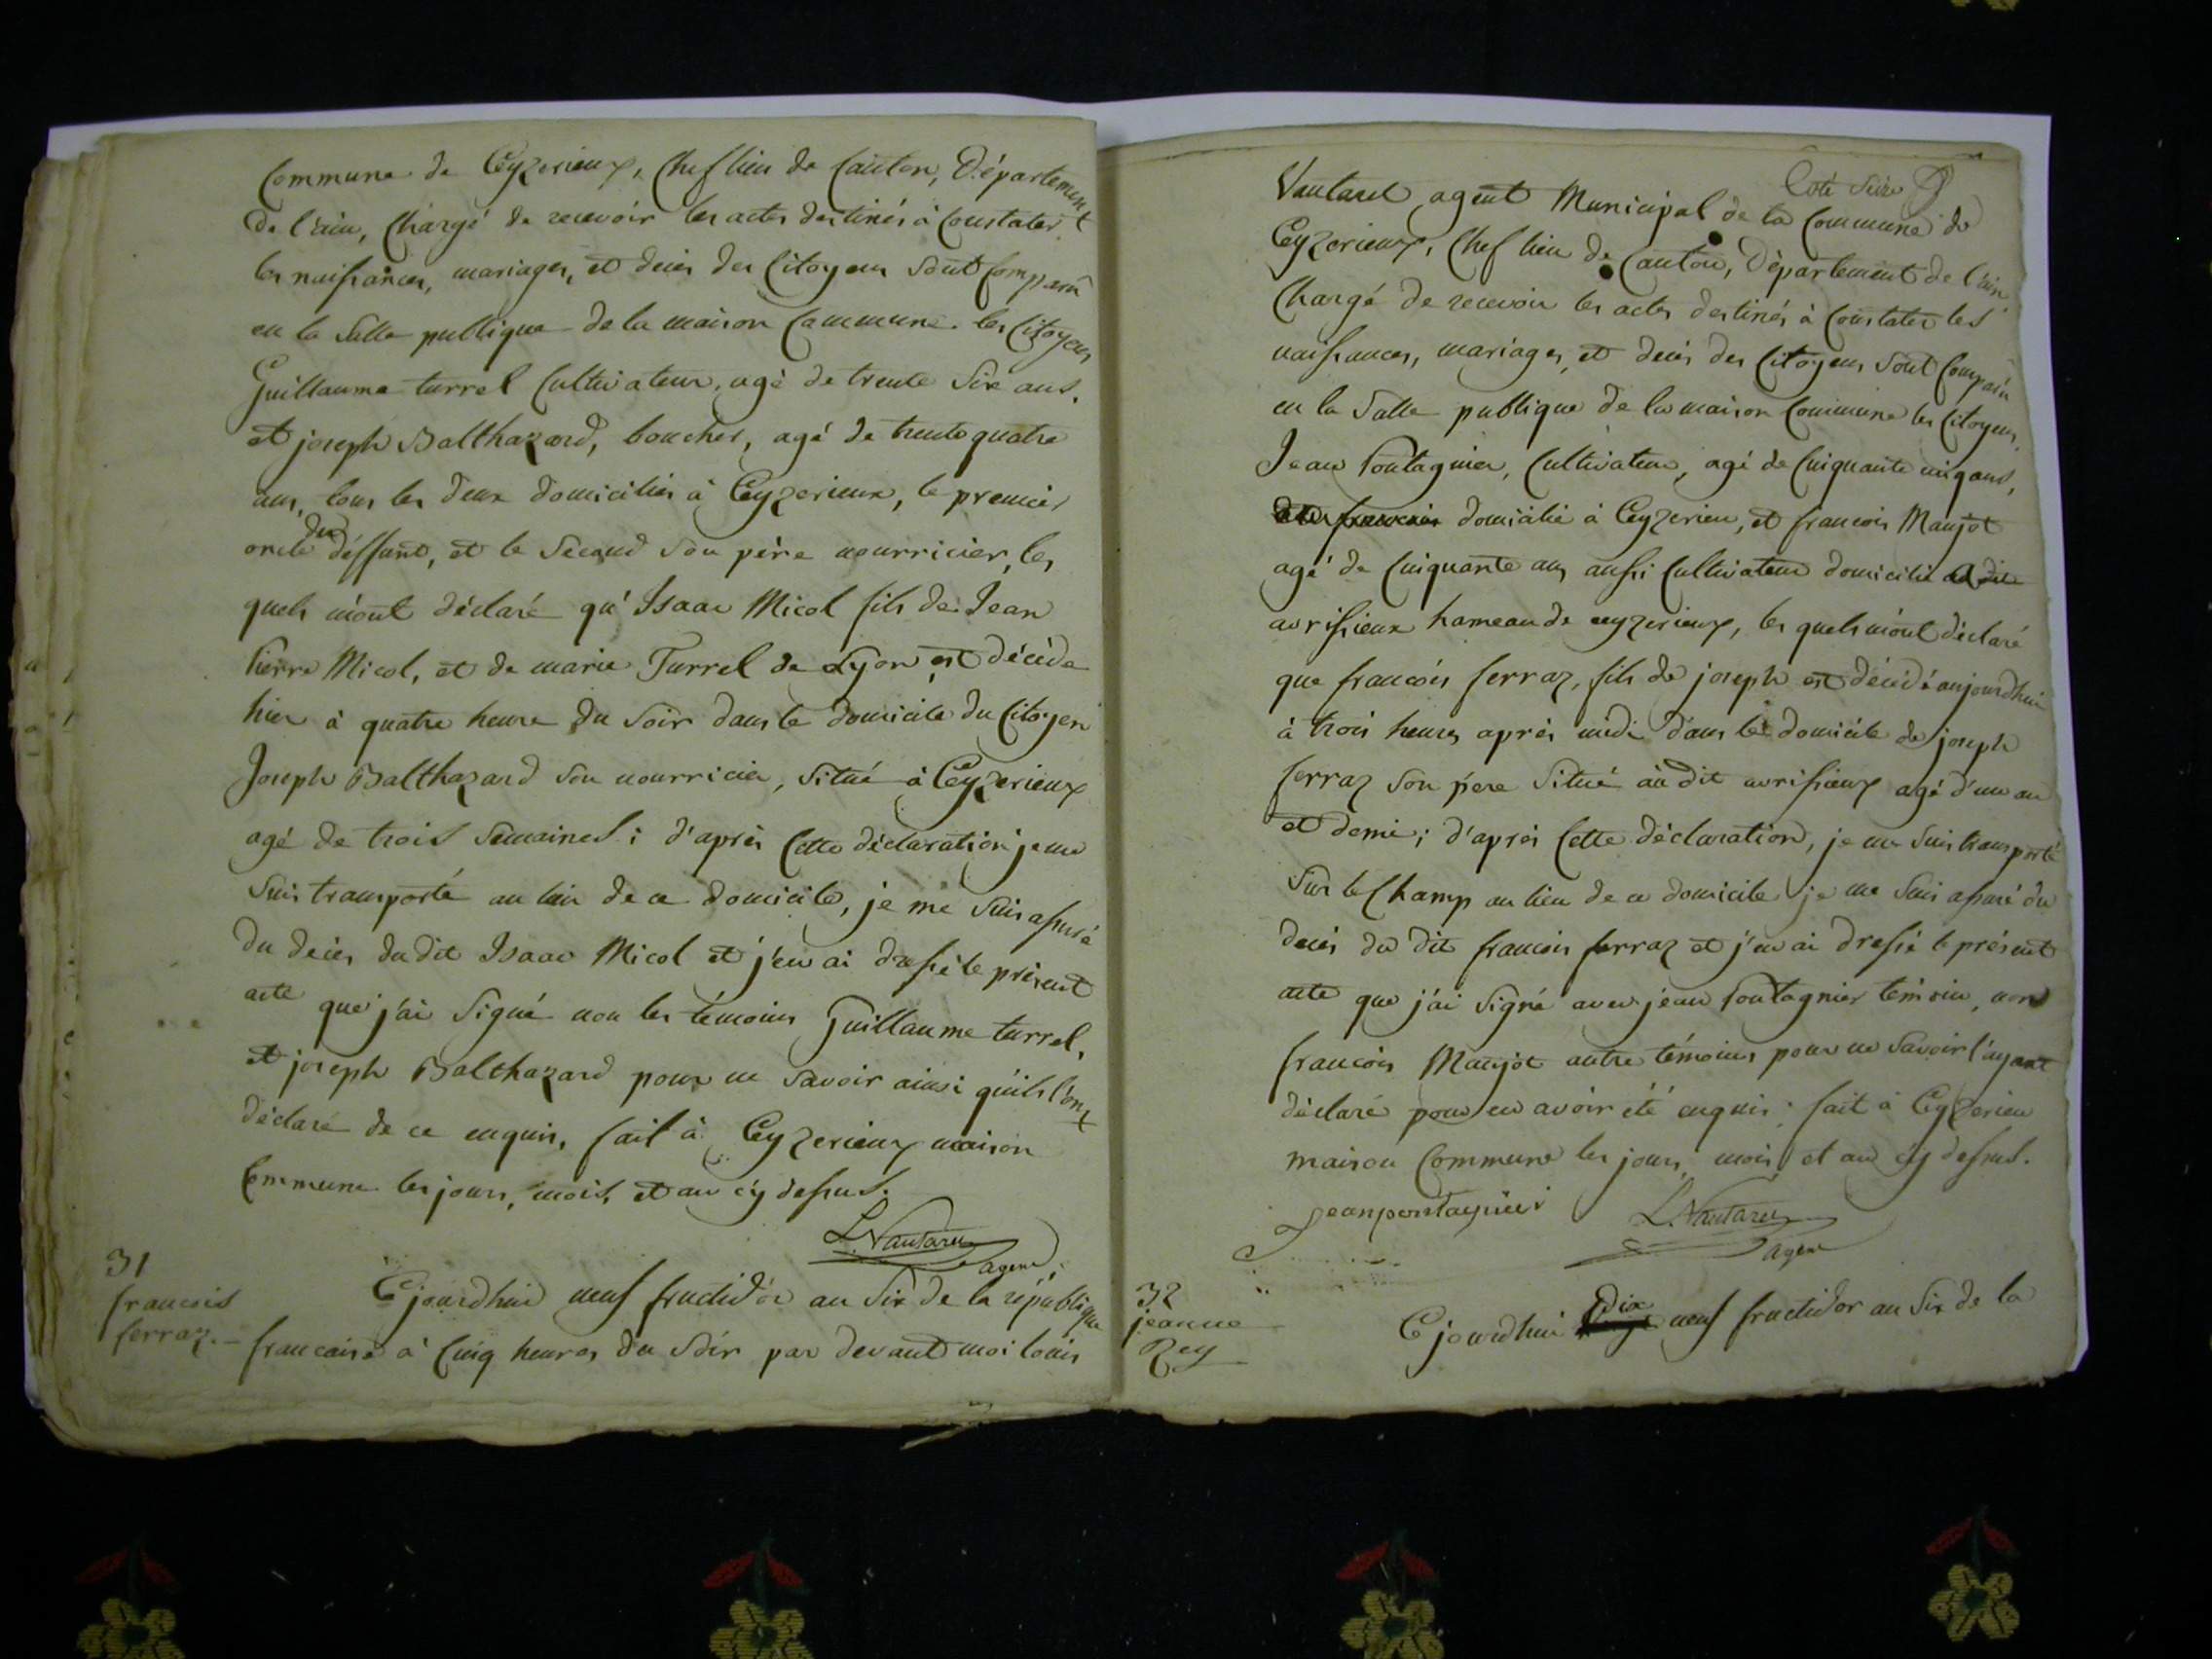 Commune de Ceyzerieux, Chef lieu de Canton, Département
de l'ain, Chargé de recevoir les actes destinés à Constater
les naissances, mariages, et deces des Citoyens sont Comparu
en la Salle publique de la maison Commune les Citoyens
Guillaume turrel Cultivateur, agé de trente Six ans.
et joseph Balthazard, boucher, agé de trente quatre
ans, tous les deux domiciliés à Ceyzerieux, le premier
oncle du déffunt, et le Second Son père nourricier, les
quels m'ont déclaré qu'Isaac Micol fils de Jean
Pierre Micol, et de marie Turrel de Lyon, est décédé
hier à quatre heure du Soir dans le domicile du Citoyen
Joseph Balthazard Son nourricier, Situé à Ceyzerieux
agé de trois Semaines ; d'après Cette déclaration je me
Suis transporté au lieu de ce domicile, je me Suis assuré
du décès du dit Isaac Micol et j'en ai dressé le présent
acte que j'ai Signé non les témoins Guillaume turrel,
et joseph Balthazard pour ne Savoir ainsi qu'ils l'ont
déclaré de ce enquis, fait à Ceyzerieux maison
Commune les jours, mois, et an cy dessus.
L. Vautaret
agent
31
francois
ferraz.
Cejourdhui neuf fructidor an Six de la république
francaise à Cinq heures du Soir par devant moi louis
Coté Seize
Vautaret agent Municipal de la Commune de
Ceyzerieux, Chef lieu de Canton, Département de l'ain
Chargé de recevoir les actes destinés à Constater les
naissances, mariages, et deces des Citoyens Sont Comparu
en la Salle publique de la maison Commune les Citoyens
Jean Pontagnier, Cultivateur, agé de Cinquante cinq ans,
domicilié à Ceyzerieu, et francois Manjot
agé de Cinquante ans aussi Cultivateur domicilié
avrissieux hameau de ceyzerieux, les quels m'ont déclaré
que francois ferraz, fils de joseph est décédé aujourdhui
à trois heures après midi dans le domicile de joseph
ferraz Son père Situé au dit avrissieux agé d'un an
et demi ; d'après Cette déclaration, je me Suis transporté
Sur le Champ au lieu de ce domicile je me Suis assuré du
deces du dit francois ferraz et j'en ai dressé le présent
acte que j'ai Signé avec jean Pontagnier témoin, non
francois Manjot autre témoins pour ne Savoir l'ayant
déclaré pour en avoir été enquis ; fait à Ceyzerieu
maison Commune les jours, mois et an cy dessus.
Jean pontagnier
L. Vautaret
agent
32
jeanne
Rey
Cejourdhui Dix neuf fructidor an Six de la